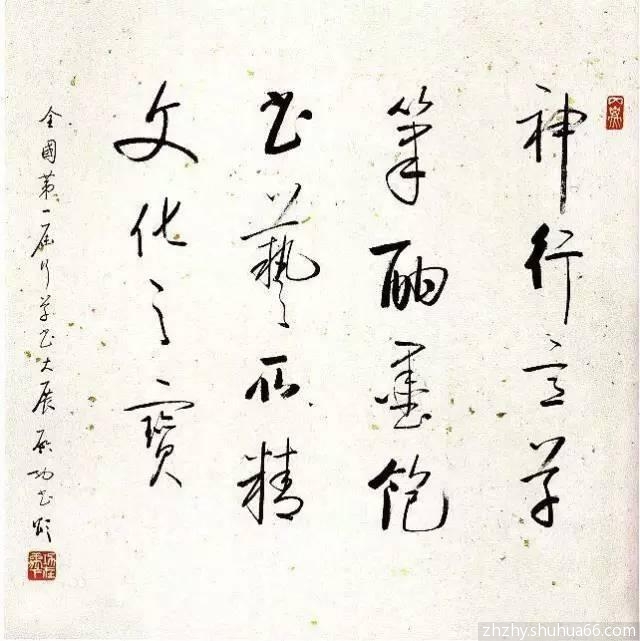 神行言草
筆酣墨飽
書藝所精
文化之寶
全國第一屆行草書大展 啟功書
zhzhy.shuhua66.com